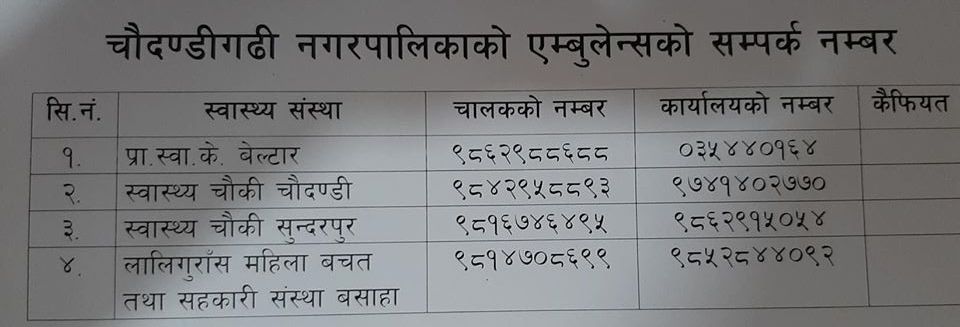 चौदण्डीगढी नगरपालिकाको एम्बुलेन्सको सम्पर्क नम्बर
सि.नं. स्वास्थ्य संस्था चालकको नम्बर कार्यालयको नम्बर कैफियत
१. प्रा.स्वा.के. बेल्टार ९८६२९८८६८८ ०३५४४०१६४
२. स्वास्थ्य चौकी चौदण्डी ९८४२९५८८९३ ९७४१४०२७७०
३. स्वास्थ्य चौकी सुन्दरपुर ९८१६७४६४९५ ९८६२९१५०५४
४. लालिगुराँस महिला बचत ९८१४७०८६९९ ९८५२८४४०९२
तथा सहकारी संस्था बसाहा